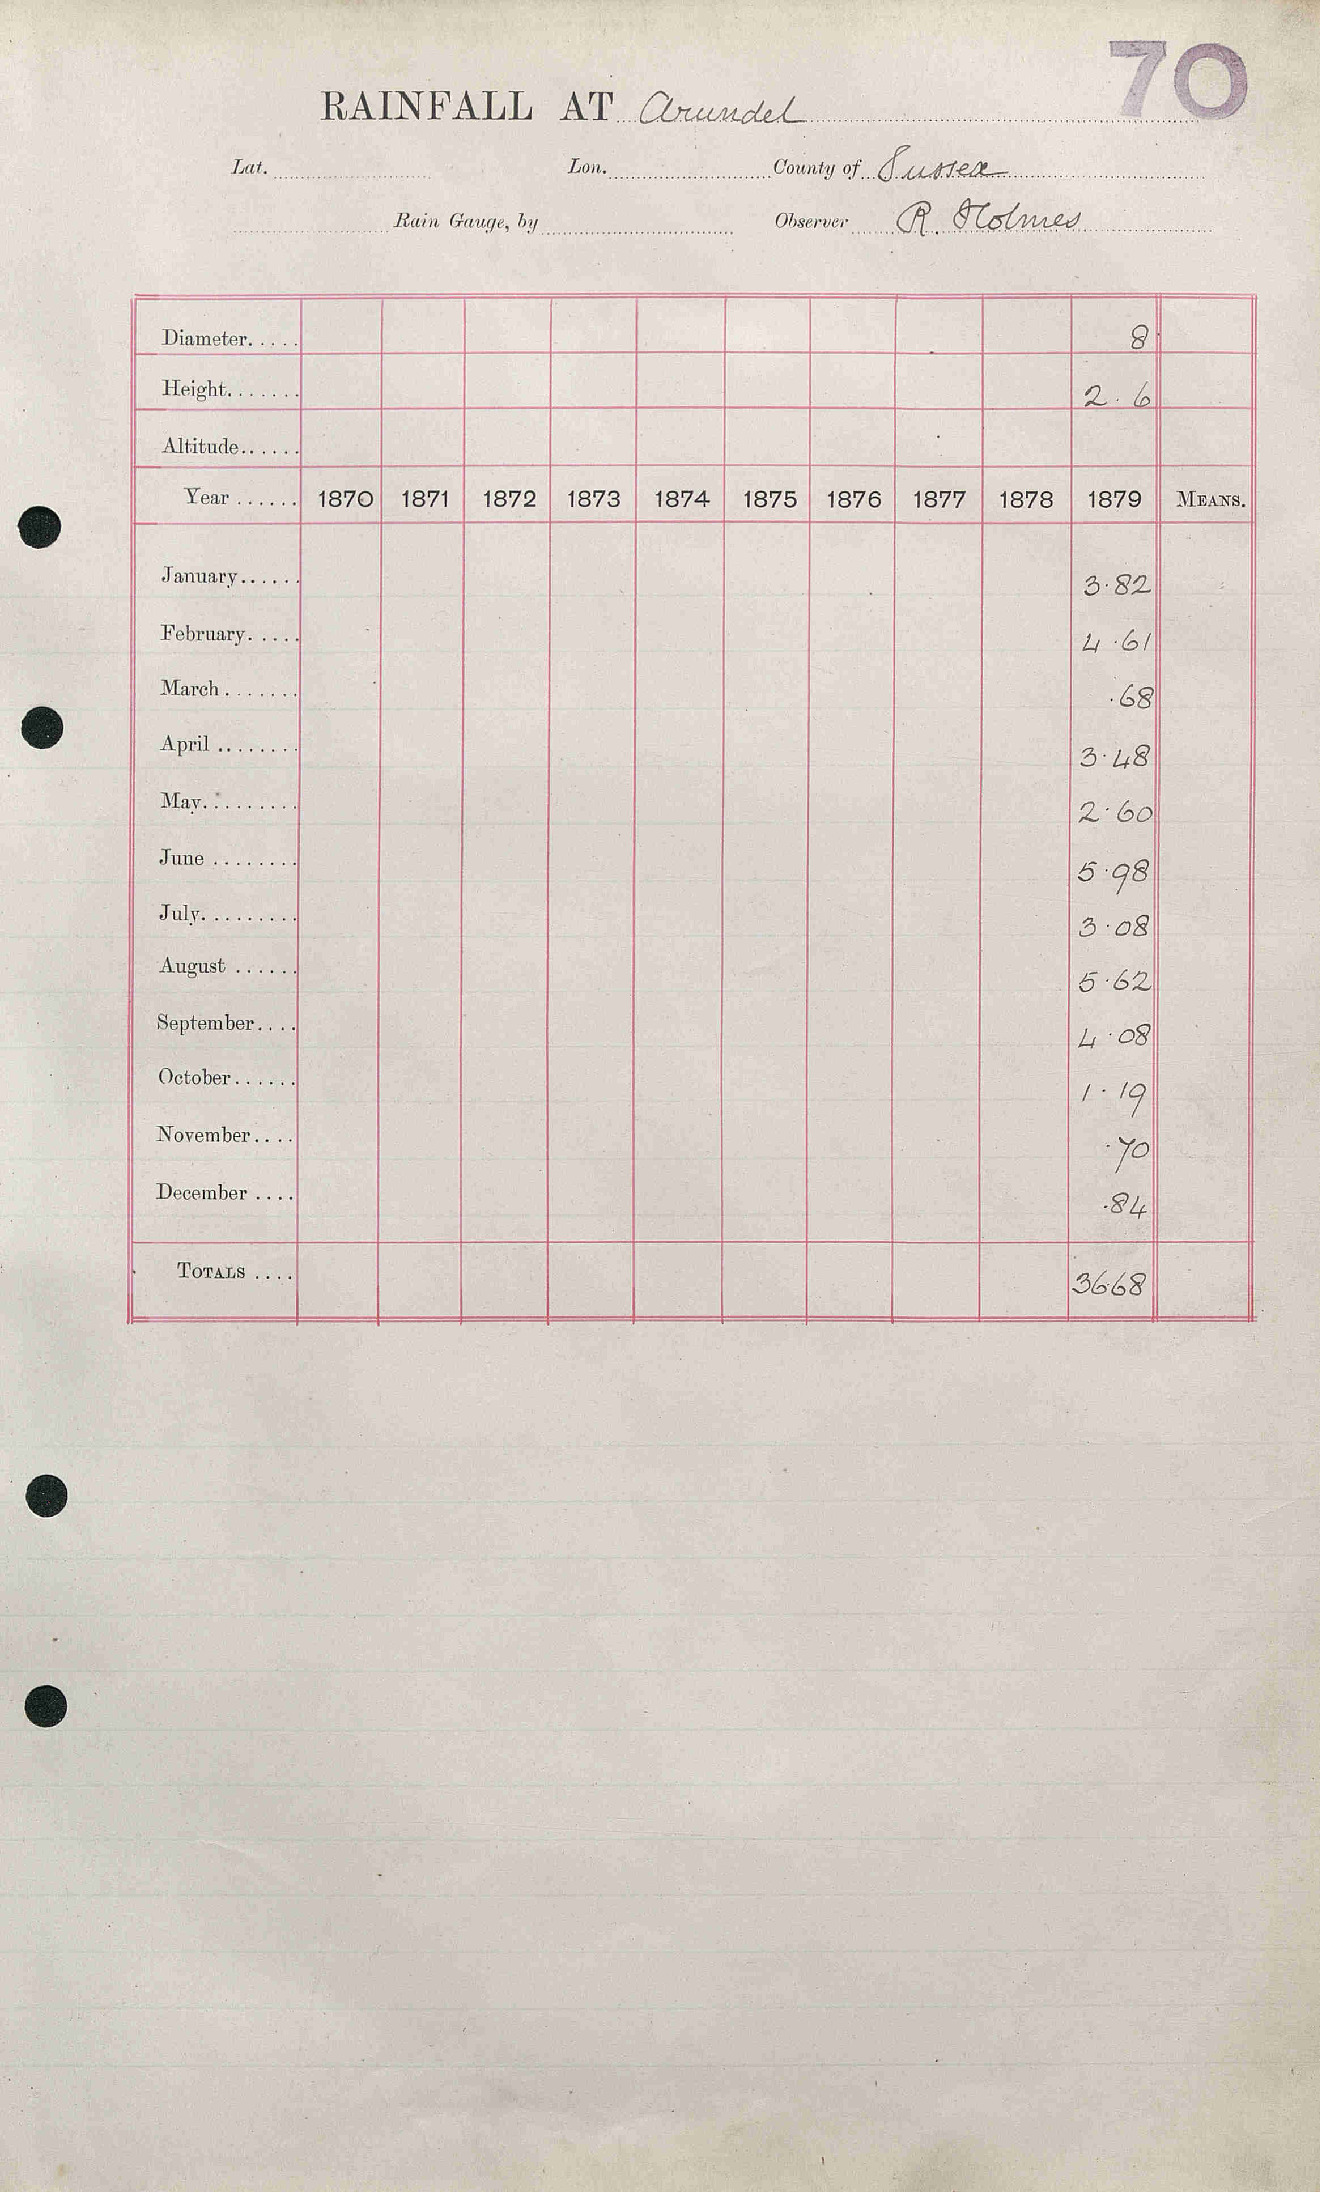 70
RAINFALL AT Arundel
Lat. Lon. County of Sussex
Rain Gauge, by Observer R. Holmes
Diameter..... 8
Height....... 2.6
Altitude......
Year ...... 1870 1871 1872 1873 1874 1875 1876 1877 1878 1879 MEANS.
January...... 3.82
February..... 4.61
March....... .68
April ........ 3.48
May......... 2.60
June ........ 5.98
July......... 3.08
August ...... 5.62
September.... 4.08
October...... 1.19
November.... .70
December .... .84
TOTALS .... 3668